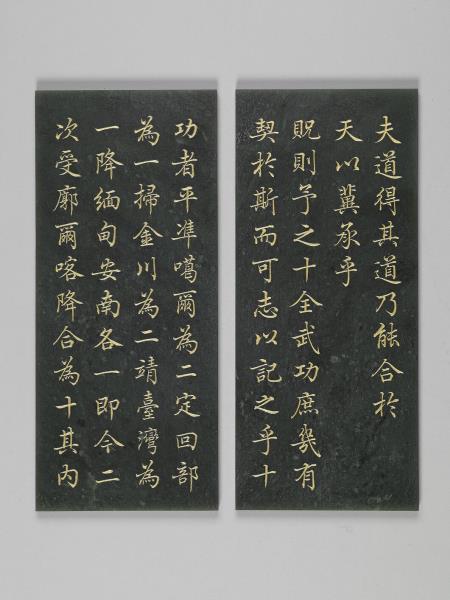 夫道得其道乃能合於
天以冀承乎
貺則予之十全武功庶幾有
契於斯而可志以記之乎十
功者平準噶爾為二定回部
為一掃金川為二靖臺灣為
一降緬甸安南各一即今二
次受廓爾喀降合為十其內